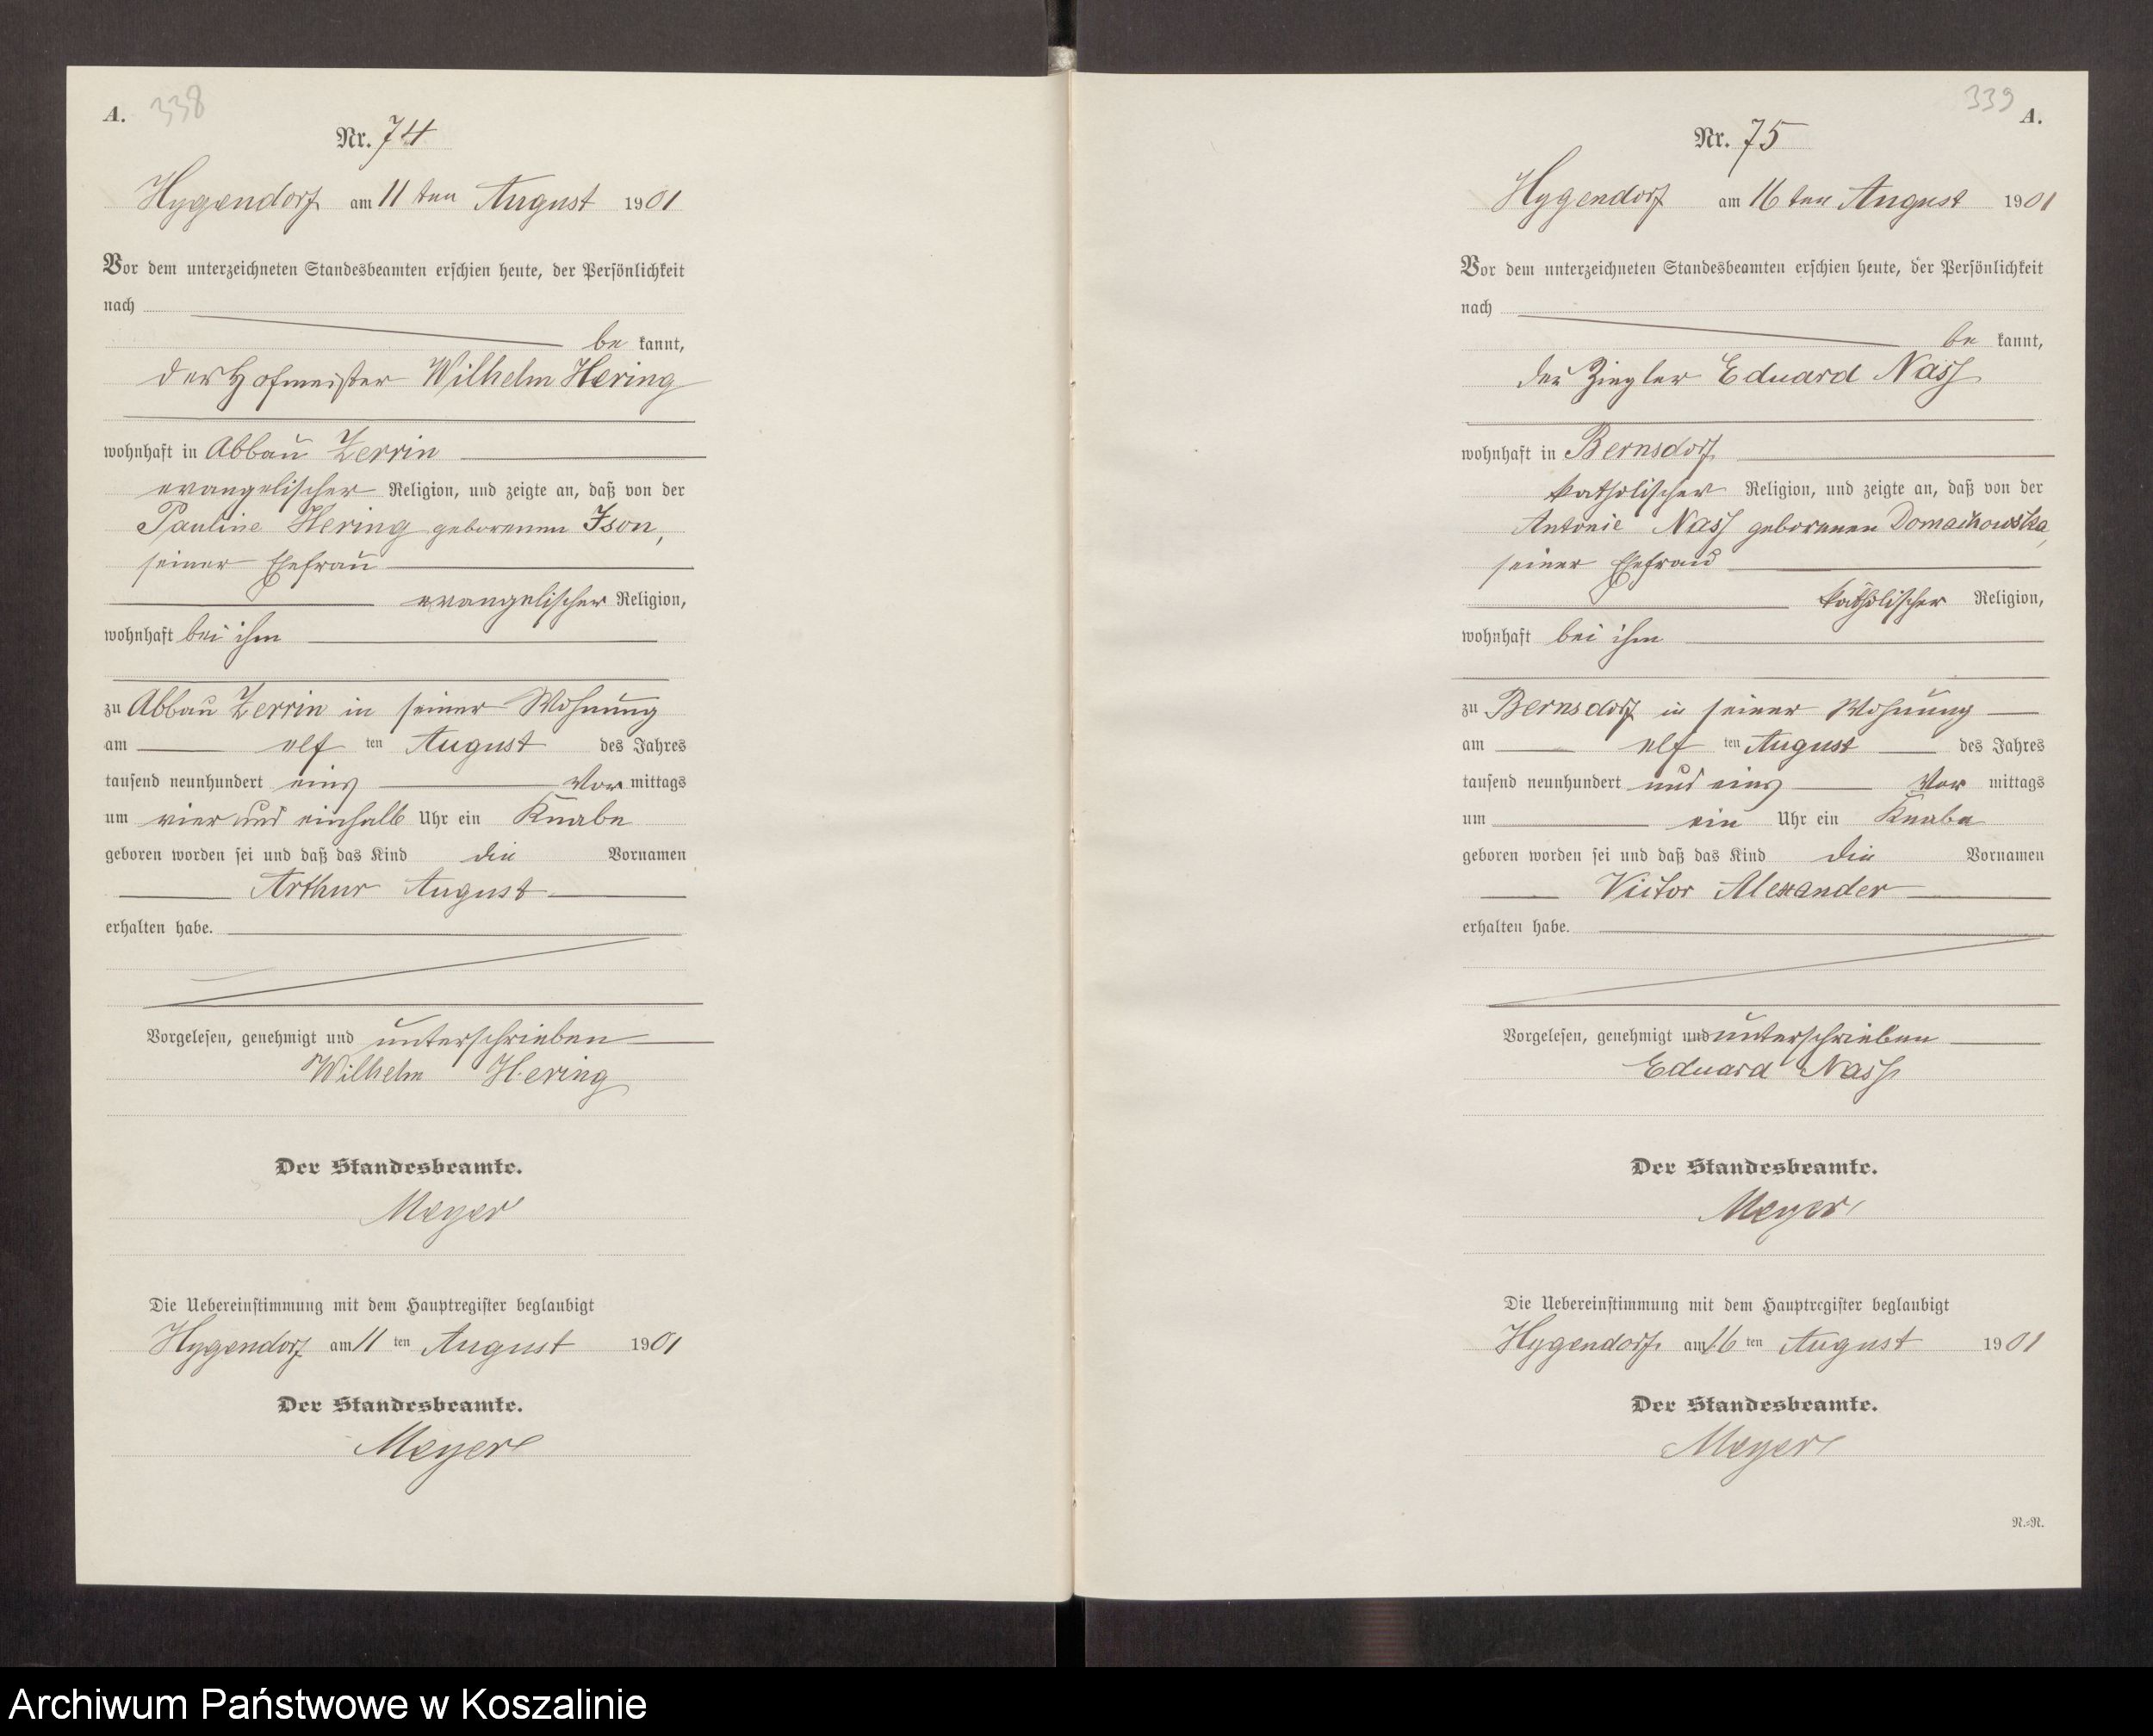 A. 338
Nr. 74
Hygendorf am 11 ten August 1901
Vor dem unterzeichneten Standesbeamten erschien heute, der Persönlichkeit
nach
be kannt,
der Hofmeister Wilhelm Hering
wohnhaft in Abbau Zerrin
evangelischer Religion, und zeigte an, daß von der
Pauline Hering geborenen Ison,
seiner Ehefrau
evangelischer Religion,
wohnhaft bei ihm
zu Abbau Zerrin in seiner Wohnung
am elf ten August des Jahres
tausend neunhundert eins Vor mittags
um vier und einhalb Uhr ein Knabe
geboren worden sei und daß das Kind die Vornamen
Arthur August
erhalten habe.
Vorgelesen, genehmigt und unterschrieben
Wilhelm Hering
Der Standesbeamte.
Meyer
Die Uebereinstimmung mit dem Hauptregister beglaubigt
Hygendorf am 11 ten August 1901
Der Standesbeamte.
Meyer
339 A.
Nr. 75
Hygendorf am 16 ten August 1901
Vor dem unterzeichneten Standesbeamten erschien heute, der Persönlichkeit
nach
be kannt,
der Ziegler Eduard Nass
wohnhaft in Bernsdorf
katholischer Religion, und zeigte an, daß von der
Antonie Nass geborenen Domachowska,
seiner Ehefrau
katholischer Religion,
wohnhaft bei ihm
zu Bernsdorf in seiner Wohnung
am elf ten August des Jahres
tausend neunhundert und eins Vor mittags
um ein Uhr ein Knabe
geboren worden sei und daß das Kind die Vornamen
Victor Alexander
erhalten habe.
Vorgelesen, genehmigt und unterschrieben
Eduard Nass
Der Standesbeamte.
Meyer
Die Uebereinstimmung mit dem Hauptregister beglaubigt
Hygendorf am 16 ten August 1901
Der Standesbeamte.
Meyer
N.=N.
Archiwum Państwowe w Koszalinie